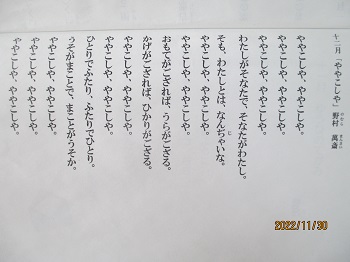 十二月「ややこしや」 野村 萬斎
ややこしや、ややこしや。
ややこしや、ややこしや。
わたしがそなたで、そなたがわたし。
そも、わたしとは、なんぢゃいな。
ややこしや、ややこしや。
ややこしや、ややこしや。
おもてがござれば、うらがござる。
かげがござれば、ひかりがござる。
ややこしや、ややこしや。
ややこしや、ややこしや。
ひとりでふたり、ふたりでひとり。
うそがまことで、まことがうそか。
ややこしや、ややこしや。
ややこしや、ややこしや。
ややこしや、ややこしや。
2022/11/30